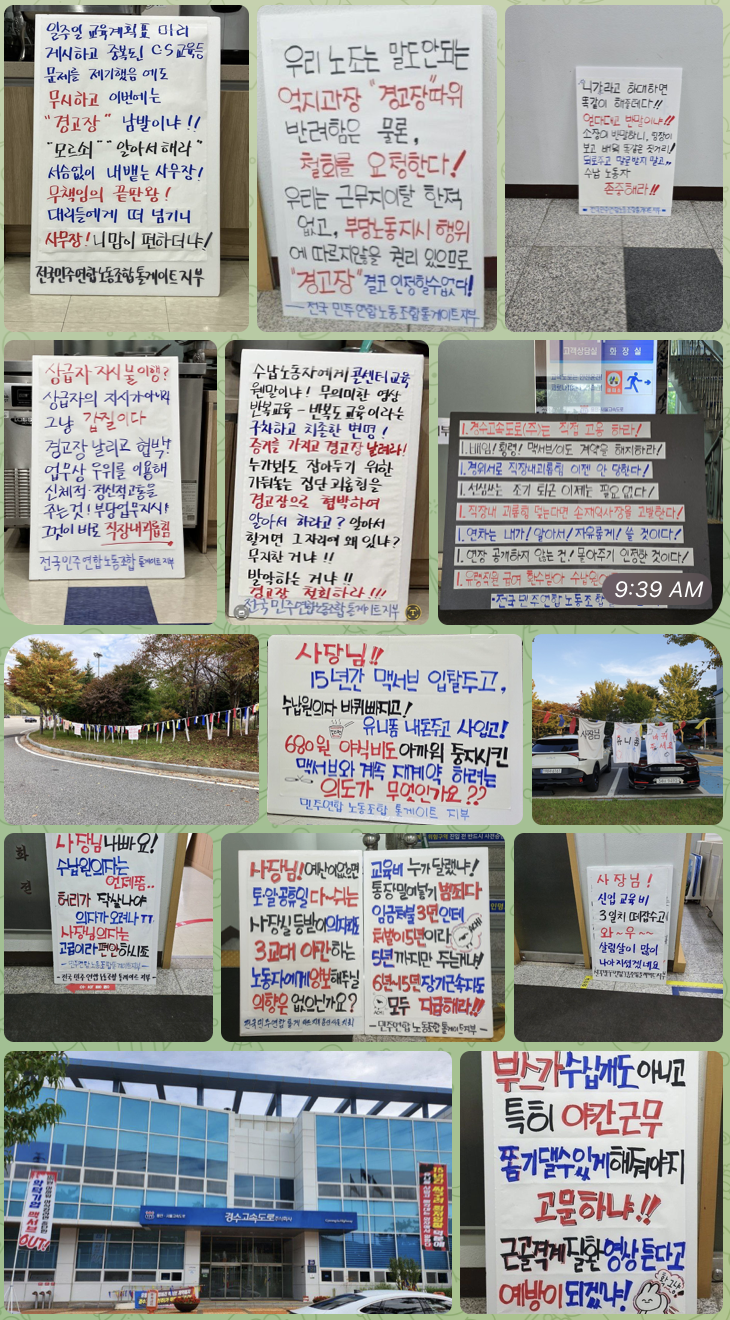 일주일 교육계획표 미리
게시하고 중복된 CS교육등
문제를 제기했음에도
무시하고 이번에는
"경고장" 남발이냐!!
"모르쇠" "알아서해라"
서슴없이 내뱉는 사무장!
무책임의 끝판왕!
대리들에게 떠 넘기니
사무장! 니맘이 편하더냐!
전국민주연합노동조합톨게이트지부
우리 노조는 말도안되는
억지과장 "경고장"따위
반려함은 물론,
철회를 요청한다!
우리는 근무지이탈 한적
없고, 부당노동지시 행위
에 따르지않을 권리 있으므로
"경고장" 결코 인정할수없다!
전국 민주연합노동조합톨게이트지부
니가라고 하대하면
똑같이 해준데다!!
얻다대고 반말이냐!!
소장이 반말하니, 팀장이
보고 배워 똑같은 짓거리!
되로주고 말로받지 말고,,
수납 노동자
존중해라!!
전국민주연합노동조합톨게이트지부
상급자 지시 불이행?
상급자의 지시가 아니라
그냥 갑질이다
경고장 날리고 협박!
업무상 우위를 이용해
신체적·정신적고통을
주는것! 부당업무지시!
그것이 바로 직장내괴롭힘
전국민주연합노동조합 톨게이트지부
수납노동자에게 콘센터교육
웬말이냐! 무의미한 영상
반복교육 - 반복도 교육이라는
구차하고 치졸한 변명!
증거를 가지고 경고장 날려라!
누가봐도 잡아두기 위한
가둬놓는 집단 괴롭힘을
경고장으로 협박하여
알아서 하라고? 알아서
할거면 그 자리에 왜 있냐?
무지한 거냐!!
발악하는 거냐!!
경고장 철회하라!!!
전국민주연합노동조합톨게이트지부
고객상담실 화장실
1. 경수고속도로(주)는 직접 고용 하라!
1. 배임! 횡령! 맥서브(이)도 계약을 해지하라!
1. 경위서로 직장내괴롭힘 이젠 안 당한다!
1. 선심쓰는 조기 퇴근 이제는 필요 없다!
1. 직장내 괴롭힘 덮는다면 손재익사장을 고발한다!
1. 연차는 내가! 알아서! 자유롭게! 쓸 것이다!
1. 연장 공개하지 않는 건! 몰아주기 인정한 것이다!
1. 유령직원 급여 환수받아 수납원
전국 민주연합노동조합
9:39 AM
사장님!!
15년간 맥서브 입찰주고,
수납원의자 바퀴빠지고!
유니폼 내돈주고 사입고!
680원 야식비도 아까워 퉁치시킨
맥서브와 계속 재계약 하려는
의도가 무엇인가요??
민주연합 노동조합 톨게이트 지부
사장님
유니폼
사장님 나빠요!
수납원의자는
언제쯤..
허리가 작살나야
의자가 오려나 ㅠㅠ
사장님의자는
고급이라 편안하시죠
민주연합노동조합 톨게이트지부
전국 민주연합 노동조합 톨게이트 지부
사장님! 예산이없으면
토·일·공휴일 다~쉬는
사장실 등받이의자라도
3교대 야간하는
노동자에게 양보해주실
의향은 없으신가요?
교육비 누가 달랬냐!
통장 말아놓기 범죄다
임금체불 3년인데
처벌이 5년이라
5년 까지만 주는거냐!
6년 나5년 장기근속자도
모두 지급해라!!
민주연합 노동조합 톨게이트지부
사장님!
신입 교육비
3일치 떼잡수고
와~우~~
살림살이 많이
나아지셨겠네요
경수고속도로주식회사
악덕기업 맥서브 OUT!
부스가 수납게도 아니고
특히 야간근무
쫌 기댈수있게해줘야지
고문하냐!!
근골격계 질환 영상 튼다고
예방이 되겠냐!